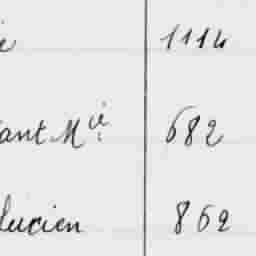 e 1114
ant Mie 682
lucien 862